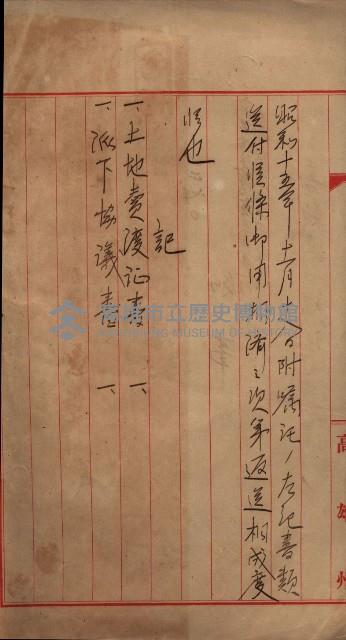 昭和十五年十一月 日附嘱託ノ左記書類
送付候條御用 済之次第返送相成度
候也
記
一 土地賣渡証書 一、
一、派下協議書 一、
高雄州
高雄市立歷史博物館
KAOHSIUNG MUSEUM OF HISTORY